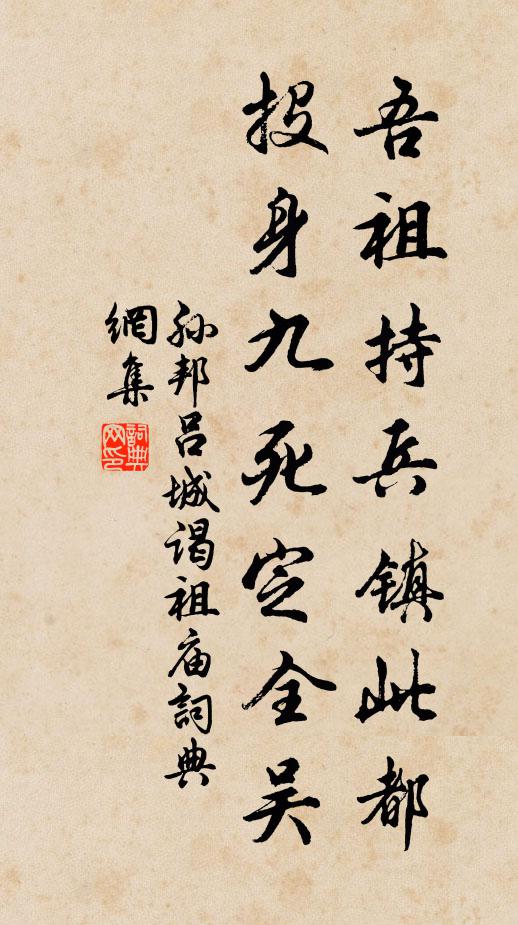 吾祖持兵镇此都
投身九死定全吴
孙邦吕城谒祖庙詞典
網集
詞典
网印